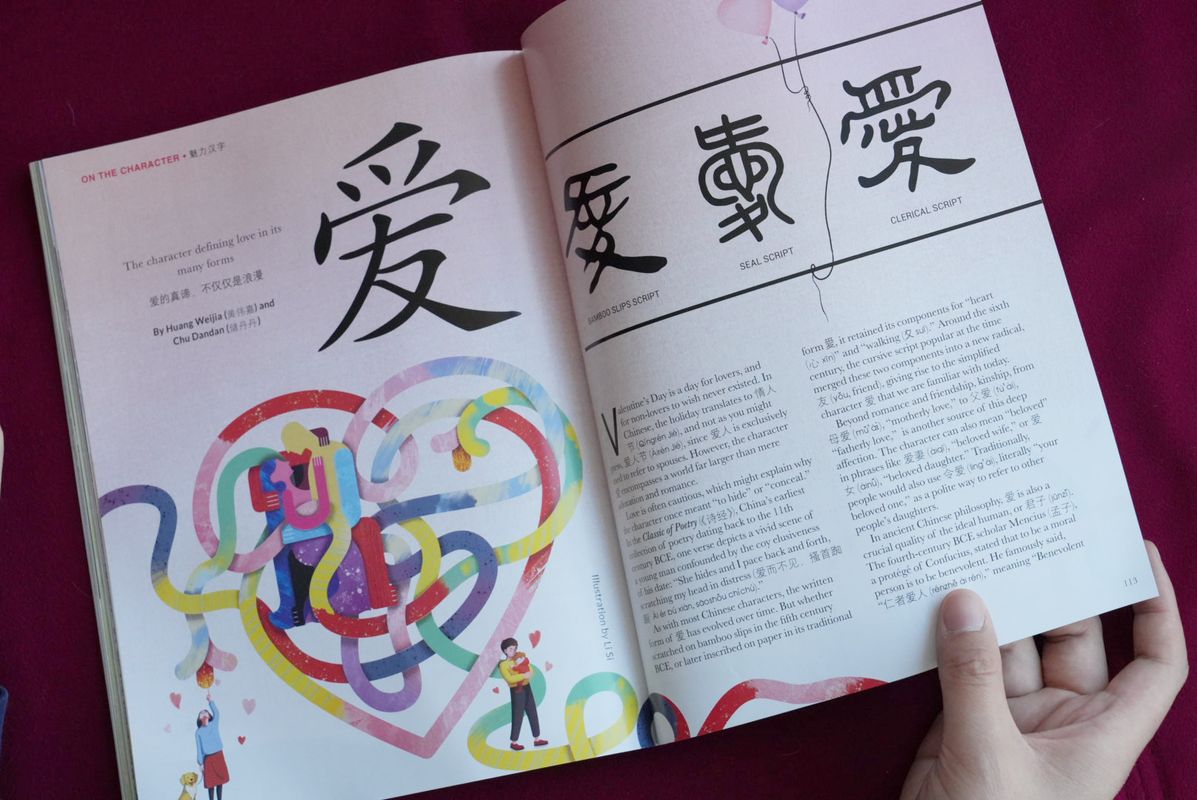 ON THE CHARACTER • 魅力汉字
爱
The character defining love in its
many forms
爱的真谛，不仅仅是浪漫
By Huang Weijia (黄伟嘉) and
Chu Dandan (储丹丹)
Illustration by Li Si
愛 愛 愛
BAMBOO SLIPS SCRIPT
SEAL SCRIPT
CLERICAL SCRIPT
Valentine's Day is a day for lovers, and
for non-lovers to wish never existed. In
Chinese, the holiday translates to 情人
节 (Qíngrén Jié), and not as you might
爱人节 (Àirén Jié), since 爱人 is exclusively
used to refer to spouses. However, the character
爱 encompasses a world far larger than mere
and romance.
Love is often cautious, which might explain why
the character once meant "to hide" or "conceal."
In the Classic of Poetry (《诗经》), China's earliest
collection of poetry dating back to the 11th
century BCE, one verse depicts a vivid scene of
a young man confounded by the coy elusiveness
of his date: "She hides and I pace back and forth,
scratching my head in distress (爱而不见，搔首踟
蹰 ài ér bú xiàn, sāoshǒu chíchú)."
As with most Chinese characters, the written
form of 爱 has evolved over time. But whether
scratched on bamboo slips in the fifth century
BCE, or later inscribed on paper in its traditional
form 愛, it retained its components for "heart
(心 xīn)" and "walking (夊 suī)." Around the sixth
century, the cursive script popular at the time
merged these two components into a new radical,
友 (yǒu, friend), giving rise to the simplified
character 爱 that we are familiar with today.
Beyond romance and friendship, kinship, from
母爱 (mǔ'ài), "motherly love," to 父爱 (fù'ài),
"fatherly love," is another source of this deep
affection. The character can also mean "beloved"
in phrases like 爱妻 (àiqī), "beloved wife," or 爱
女 (àinǚ), "beloved daughter." Traditionally,
people would also use 令爱 (lìng'ài), literally "your
beloved one," as a polite way to refer to other
people's daughters.
In ancient Chinese philosophy, 爱 is also a
crucial quality of the ideal human, or 君子 (jūnzǐ).
The fourth-century BCE scholar Mencius (孟子),
a protégé of Confucius, stated that to be a moral
person is to be benevolent. He famously said,
"仁者爱人 (rénzhě ài rén)," meaning "Benevolent
113